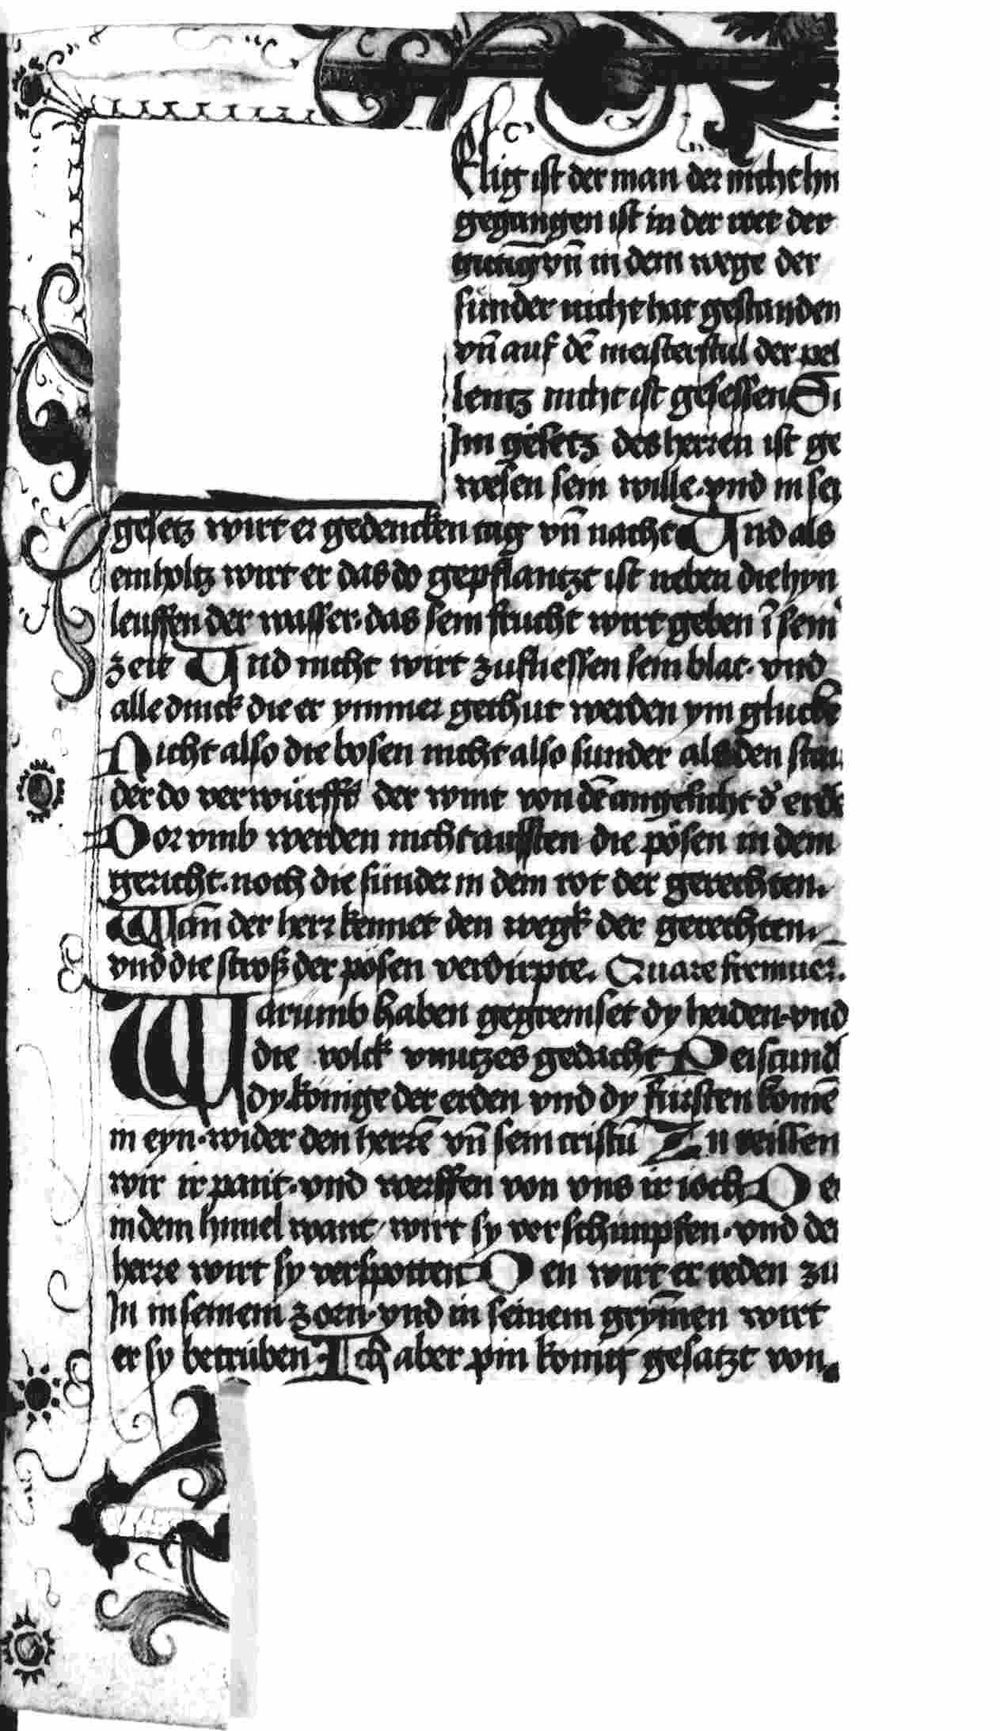 Elig ist der man der nicht hin
gegangen ist in der ret der
vnd in dem wege der
sunder nicht hat gestanden
vn̄ auf dē meisterstul der pes
lentz nicht ist gesessen Su
Im gesetz des herren ist ge
wesen sein wille. vnd in sei
gesetz wirt er gedencken tag vn̄ nacht Und als
ein holtz wirt er das do gepflantzt ist neben die hyn
leuffen der wasser. das sein frucht wirt geben ī sein
zeit Und nicht wirt zufliessen sein blat. vnd
alle dinck die er ymmer gethut werden ym gluck
Nicht also die bosen nicht also sunder als den stau
der do verwürfft der wint von dē angesicht d̉ erde
Dor vmb werden nicht aufsten die pösen in dem
gericht. noch die sünder in dem rot der gerechten.
Wan̄ der herr kennet den wegk der gerechten.
vnd die stroß der pösen verdirpte. Quare fremuer.
Warumb haben gegremset dy heiden. vnd
die volck vnutzes gedacht Peistund
dy. könige der erden vnd dy fürsten komē
in eyn. wider den herrē vn̄ sein cristū Zu reissen
wir ir pant. vnd werffen von vns ir ioch De
in dem himel want / wirt sy verschimpfen. vnd der
herre wirt sy verspotten Den wirt er reden zu
In in seinem zorn. vnd in seinem grym̄en wirt
er sy betrüben Ich aber pin konig gesatzt von